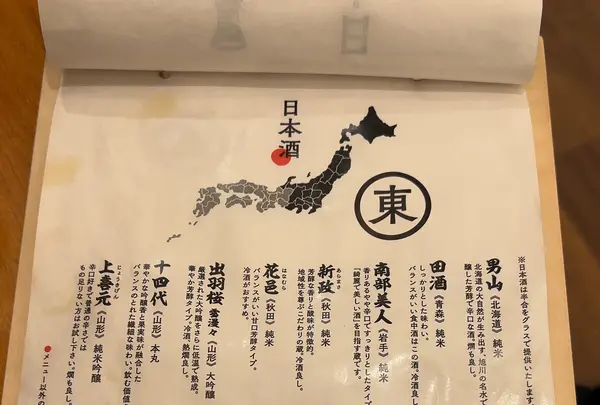 日本酒
東
※日本酒は半合をグラスで提供いたします
男山（北海道）純米
北海道の大自然が生み出す、旭川の名水で
醸した芳醇で辛口な酒。燗も良し。
田酒（青森）純米
しっかりとした味わい。
バランスがいい食中酒はこの酒。冷酒良し
南部美人（岩手）純米
香りあるやや辛口ですっきりとしたタイプ
「綺麗で美しい酒」を目指す蔵です。
あらまさ
新政（秋田）純米
芳醇な香りと酸味が特徴的。
地域性を尊ぶこだわりの蔵。冷酒良し。
はなむら
花邑（秋田）純米
バランスがいい甘口芳醇タイプ。
冷酒がおすすめ。
出羽桜 雪漫々（山形）大吟醸
厳選された大吟醸をさらに低温で熟成。
華やか芳醇タイプ。冷酒、熱燗良し。
十四代（山形）本丸
華やかな吟醸香と果実味が融合した
バランスのとれた繊細な味わい。飲む価値
じょうきげん
上喜元（山形）純米吟醸
辛口好きで普通の辛さでは
もの足りない方はお試し下さい。燗も良し。
●メニュー以外の